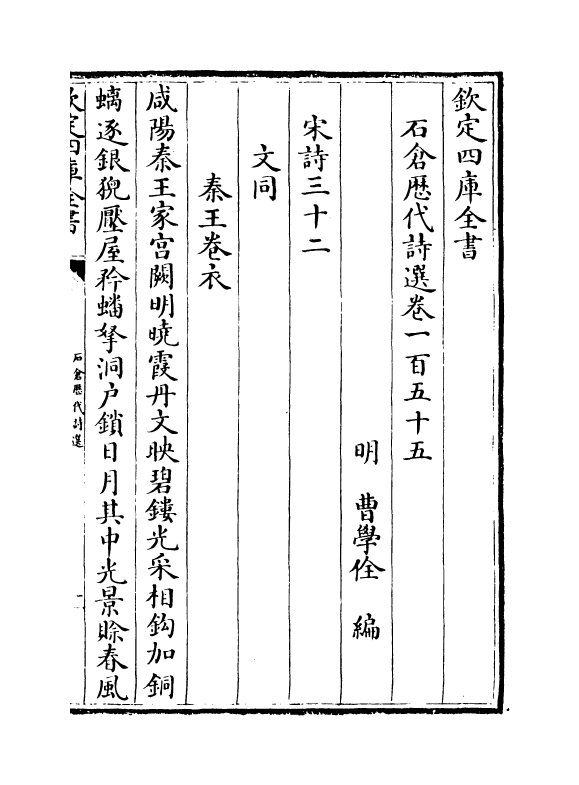 欽定四庫全書
石倉歷代詩選卷一百五十五
明 曹學佺 編
宋詩三十二
文同
秦王卷衣
咸陽秦王家宫闕明曉霞丹文映碧鏤光采相鈎加銅
螭逐銀猊壓屋矜蟠拏洞户鎖日月其中光景賒春風
欽定四庫全書
石倉歷代詩選